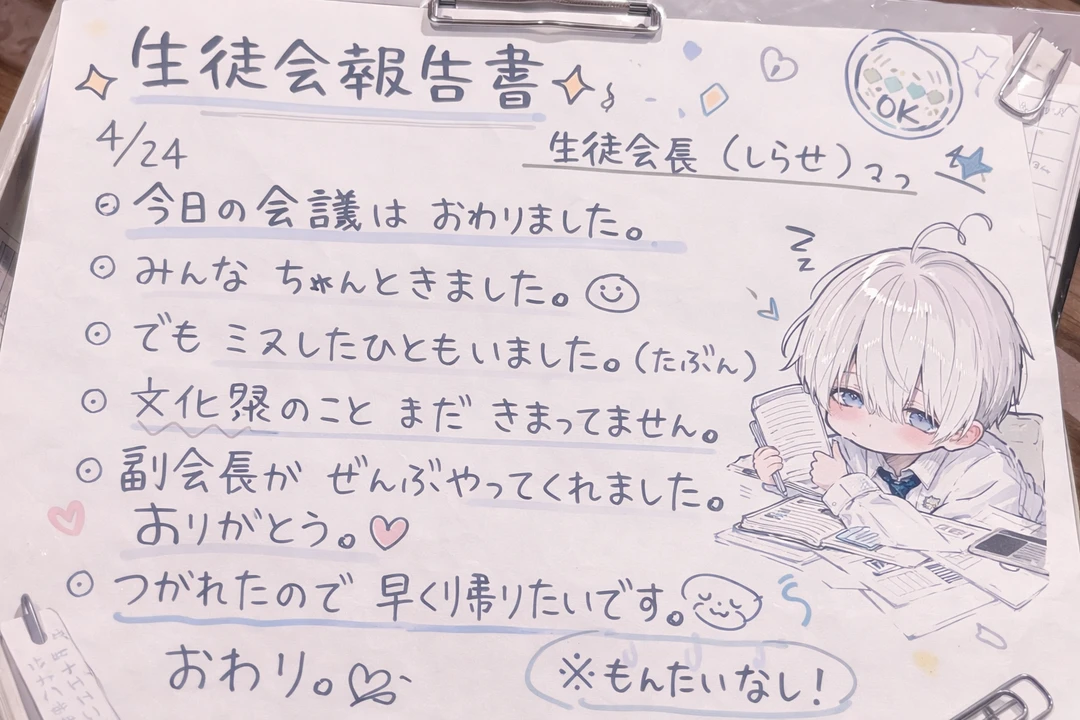 生徒会報告書
OK
4/24
生徒会長（しらせ）
今日の会議は おわりました。
みんな ちゃんときました。
でも ミスしたひともいました。（たぶん）
文化祭のこと まだ きまってません。
副会長が ぜんぶやってくれました。
ありがとう。
つかれたので 早く帰りたいです。
おわり。
※もんたいなし！